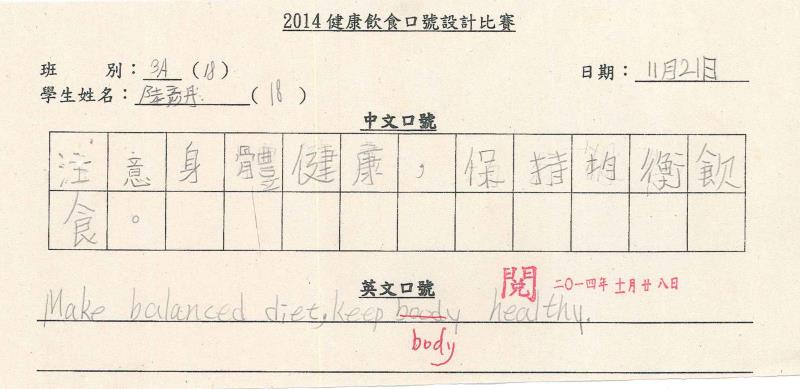 2014 健康飲食口號設計比賽
班 別：3A (18) 日期：11月21日
學生姓名： (18)
中文口號
注意身體健康，保持均衡飲
食。
英文口號 閱 二〇一四年十一月廿八日
Make balanced diet, keep boody healthy.
body